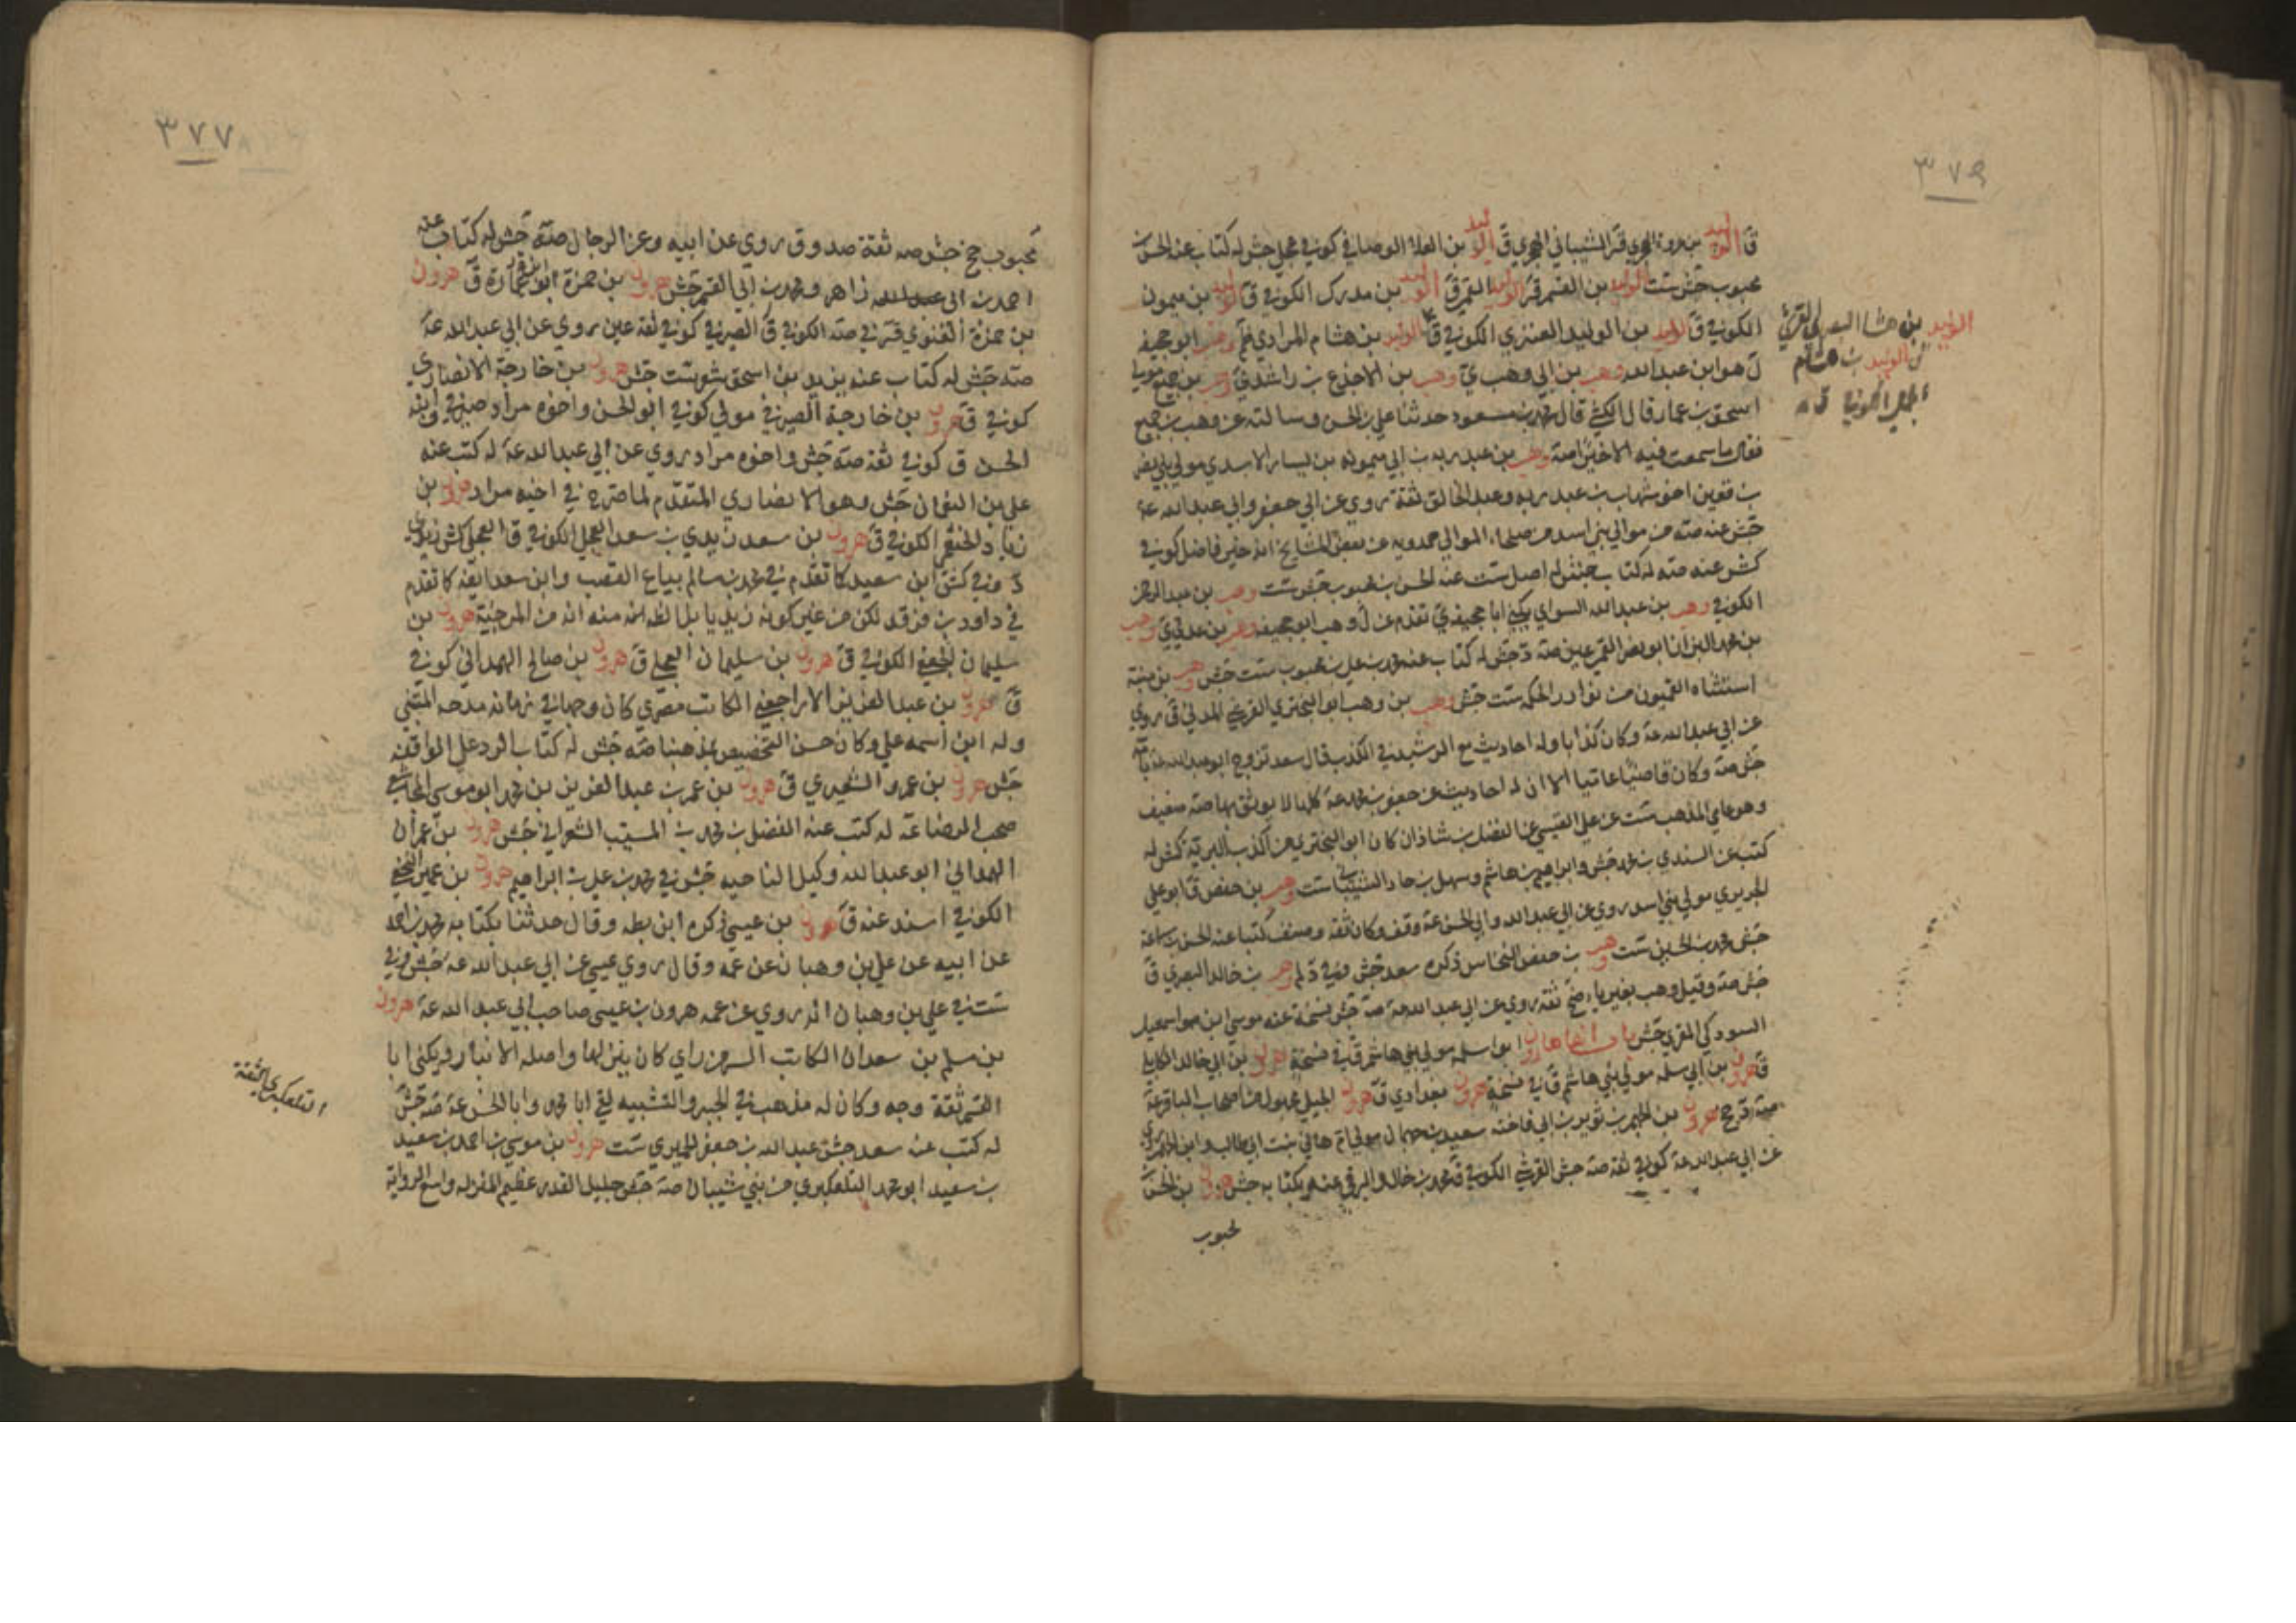 ٣٧٩
ق الوليد بن عروة الهجري قر الشيباني الهجري ق الوليد بن العلاء الوصافي كوفي عجلي جش له كتاب عنه الحسن بن
محبوب جش ست الوليد بن القسم قر الوليد القمري ق الوليد بن مدرك الكوفي ق الوليد بن ميمون
الكوفي ق الوليد بن الوليد العنزي الكوفي ق الوليد بن هشام المرادي وهب ابو جحيفه
ل هو ابن عبد الله وهب بن ابي وهب ي وهب بن الاجذع بن راشد ق وهب بن جميع مولى
اسحق بن عمار قال الكشي قال محمد بن مسعود حدثنا علي بن الحسن وسالته عن وهب بن جميع
فقال ما سمعت فيه الا خيرا صه وهب بن عبد ربه بن ابي ميمونه بن يسار الاسدي مولى بني نصر
بن قعين اخو شهاب بن عبد ربه وعبد الخالق ثقة روي عن ابي جعفر وابي عبد الله عه
جش عنه صه من موالي بني اسد من صلحاء الموالي حمدويه عن بعض المشايخ انه خير فاضل كوفي
كش عنه صه له كتاب جش له اصل ست عنه الحسن بن محبوب جش ست وهب بن عبد الرحمن
الكوفي وهب بن عبد الله السواي يكني ابا جحيفه ي تقدم عن ل وهب ابو جحيفه وهب بن عدي ي وهب
بن محمد البزاز ابو نصر القمي عين صه د جش له كتاب عنه محمد بن علي بن محبوب ست جش وهب بن منبه
استثناه القميون من نوادر الحكمه ست جش وهب بن وهب ابو البختري القرشي المدني ق روي
عن ابي عبد الله عه وكان كذابا وله احاديث مع الرشيد في الكذب قال سعد تزوج ابو عبد الله عه بامه
جش صه وكان قاضيا عاميا الا ان له احاديث عن جعفر بن محمد عه كلها لا يوثق بها صه ضعيف
وهو عامي المذهب ست عن علي القتيبي عن الفضل بن شاذان كان ابو البختري من اكذب البرية كش له
كتب عن السندي بن محمد جش وابراهيم بن هاشم وسهل بن حماد الشيباني ست وهيب بن حفص ق ابو علي
الجريري مولى بني اسد روي عن ابي عبد الله وابي الحسن عه وقف وكان ثقة وصنف كتبا عنه الحسن بن سماعة
جش محمد بن الحسين ست وهيب بن حفص النخاس ذكره سعد جش وفي د لم وهيب بن خالد البصري ق
جش صه وقيل وهب بغير ياء ضح ثقة روي عن ابي عبد الله عه صه جش نسخة عنه موسى ابن اسمعيل
السودكي المقري جش باب الهاء هارون ابو اسلمه مولى بني هاشم ق في نسخة هرون بن ابي خالد الكابلي
ق هرون بن ابي سلمه مولى بني هاشم ق في نسخة هرون بغدادي ق هرون الجبلي مجهول من اصحاب الباقر عه
صه هرون بن الجهم بن ثوير بن ابي فاخته سعيد بن جهمان مولى ام هاني بنت ابي طالب
عن ابي عبد الله عه كوفي ثقة صه جش القرشي الكوفي ق محمد بن خالد البرقي عنه بكتابه جش هرون بن الحسن
محبوب
الوليد بن هشام البصري القرشي
ق الوليد بن هشام
الكوفي ق
٣٧٧
محبوب جخ جش صه ثقة صدوق روي عن ابيه وعن الرجال صه جش له كتاب عنه
احمد بن ابي عبد الله زاهر ومحمد بن ابي القسم جش هرون بن حمزة ابو عمارة ق هرون
بن حمزة الغنوي قر في صه الكوفي ق الصيرفي كوفي ثقة عين روي عن ابي عبد الله عه
صه جش له كتاب عنه يزيد بن اسحق شعر ست جش هرون بن خارجة الانصاري
كوفي ق هرون بن خارجة الصيرفي مولى كوفي ابو الحسن واخوه مراد صيرفي وابنه
الحسن ق كوفي ثقة صه جش واخوه مراد روي عن ابي عبد الله عه له كتب عنه
علي بن النعمان جش وهو الانصاري المتقدم لما صرح في اخيه مراد هرون بن
زياد الخثعمي الكوفي ق هرون بن سعد زيدي بن سعد العجلي الكوفي ق العجلي كش زيدي
د وفي كش ابن سعيد كما تقدم في محمد بن سالم بياع القصب وابن سعد ايضا كما تقدم
في داود بن فرقد لكن من غير كونه زيديا بل الظاهر منه انه من المرجئية هرون بن
سليمان النخعي الكوفي ق هرون بن سليمان العجلي ق هرون بن صالح الهمداني كوفي
ق هرون بن عبد العزيز الاراجني الكاتب مصري كان وجها في زمانه مدحه المتنبي
وله ابن اسمه علي وكان حسن التخصيص بمذهبنا صه جش له كتاب الرد علي الواقفه
جش هرون بن عمرو الشعيري ق هرون بن عمر بن عبد العزيز بن محمد ابو موسى المجاشعي
صحب الرضا عه له كتب عنه الفضل بن محمد بن المسيب الشعراني جش هرون بن عمران
الهمداني ابو عبد الله وكيل الناحيه جش في محمد بن علي بن ابراهيم هرون بن عمير النخعي
الكوفي اسند عنه ق هرون بن عيسى ذكره ابن بطه وقال حدثنا بكتابه محمد بن احمد
عن ابيه عن علي بن وهبان عن عمه وقال روي عيسى عن ابي عبد الله عه جش وفي
ست في علي بن وهبان انه روي عن عمه هرون بن عيسى صاحب ابي عبد الله عه هرون
بن مسلم بن سعدان الكاتب السرمن راي كان ينزلها واصله الانبار ويكني ابا
القسم ثقة وجه وكان له مذهب في الجبر والتشبيه لقي ابا محمد وابا الحسن عه صه جش
له كتب عنه سعد جش عبد الله بن جعفر الحميري ست هرون بن موسى بن احمد بن سعيد
بن سعيد ابو محمد التلعكبري من بني شيبان صه جش جليل القدر عظيم المنزله واسع الروايه
التلعكبري الثقة